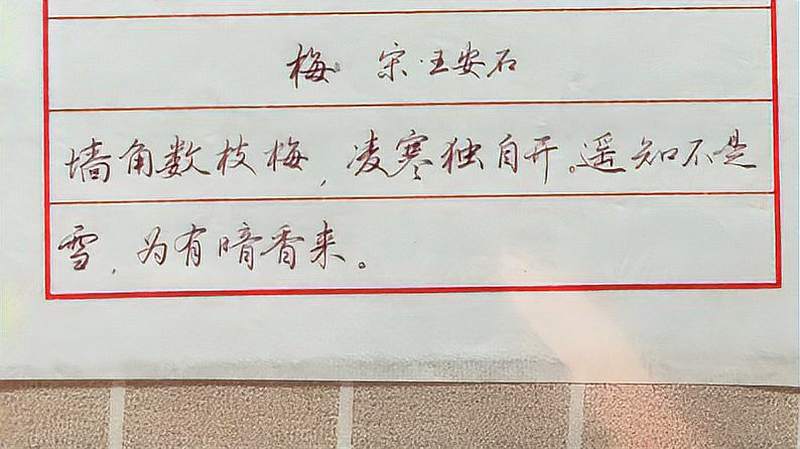 梅 宋·王安石
墙角数枝梅,凌寒独自开。遥知不是
雪,为有暗香来。